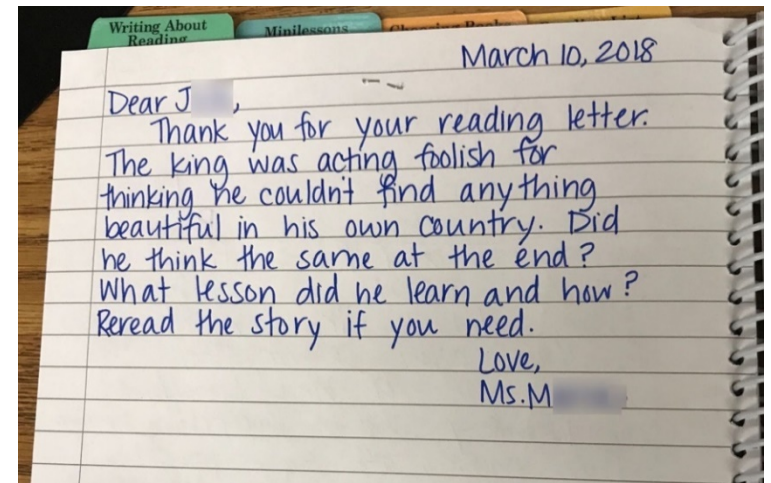 Writing About
Reading
Minilessons
March 10, 2018
Dear J
Thank you for your reading letter.
The king was acting foolish for
thinking he couldn't find anything
beautiful in his own country. Did
he think the same at the end?
What lesson did he learn and how?
Reread the story if you need.
Love,
Ms. M